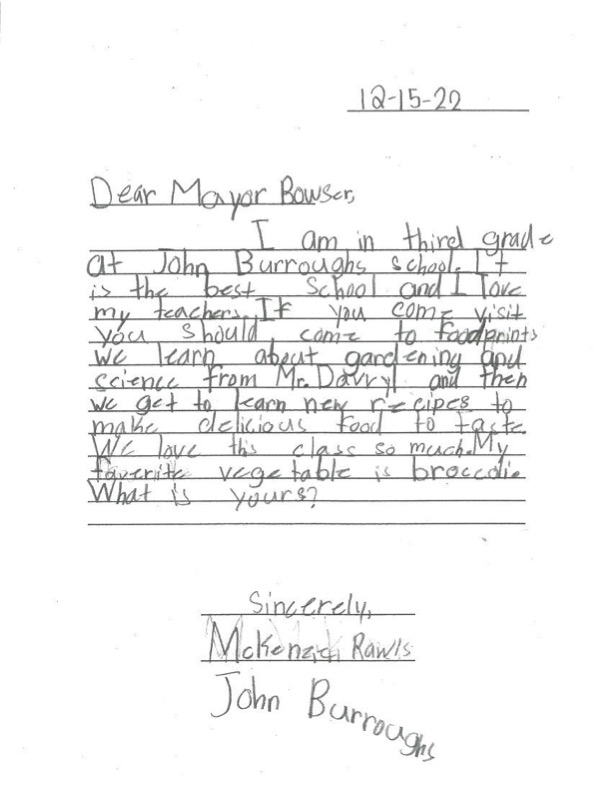 12-15-22
Dear Mayor Bowser,
I am in third grade
at John Burroughs school. It
is the best School and I love
my teachers. If you come visit
you should come to foodprints
we learn about gardening and
science from Mr. Davryl and then
we get to learn new recipes to
make delicious food to taste.
We love this class so much. My
favorite vegetable is broccoli.
What is yours?
Sincerely,
Rawls
John Burroughs